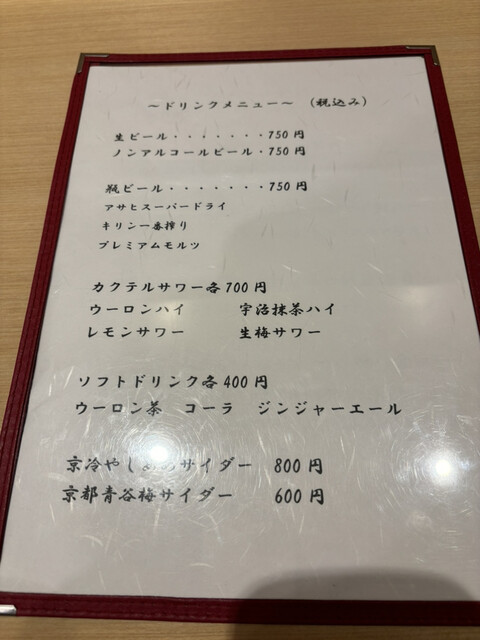 ～ドリンクメニュー～　(税込み)
生ビール・・・・・・・750円
ノンアルコールビール・750円
瓶ビール・・・・・・・750円
アサヒスーパードライ
キリン一番搾り
プレミアムモルツ
カクテルサワー各700円
ウーロンハイ　　　宇治抹茶ハイ
レモンサワー　　　生梅サワー
ソフトドリンク各400円
ウーロン茶　コーラ　ジンジャーエール
京冷やしあめサイダー　800円
京都青谷梅サイダー　　600円